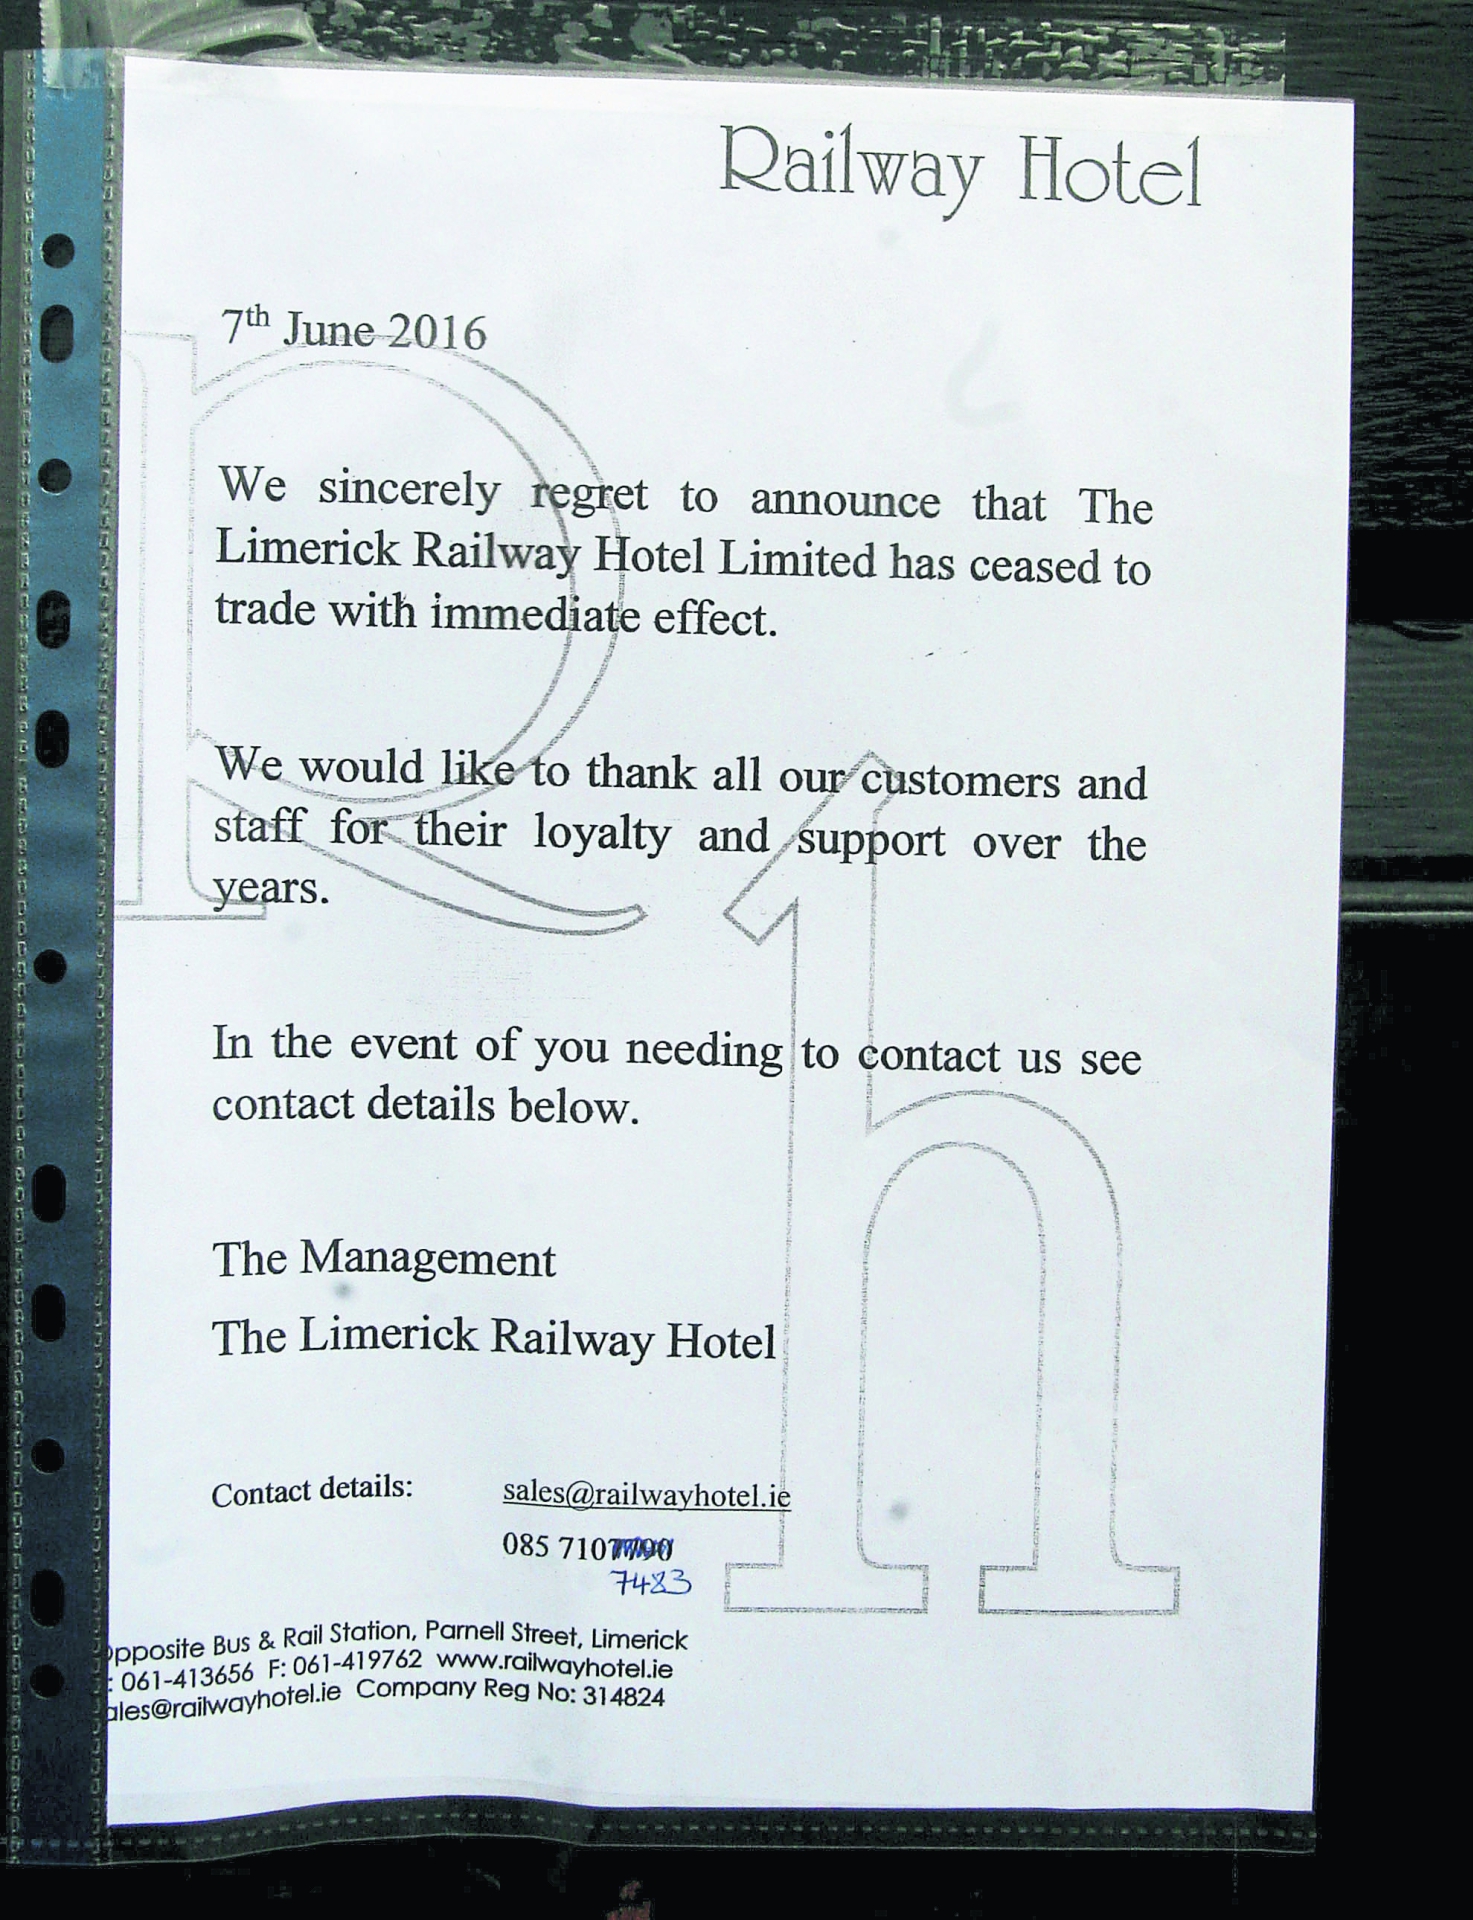 Railway Hotel
7th June 2016
We sincerely regret to announce that The
Limerick Railway Hotel Limited has ceased to
trade with immediate effect.
We would like to thank all our customers and
staff for their loyalty and support over the
years.
In the event of you needing to contact us see
contact details below.
The Management
The Limerick Railway Hotel
Contact details: sales@railwayhotel.ie
085 710
7483
pposite Bus & Rail Station, Parnell Street, Limerick
: 061-413656 F: 061-419762 www.railwayhotel.ie
ales@railwayhotel.ie Company Reg No: 314824
Rh